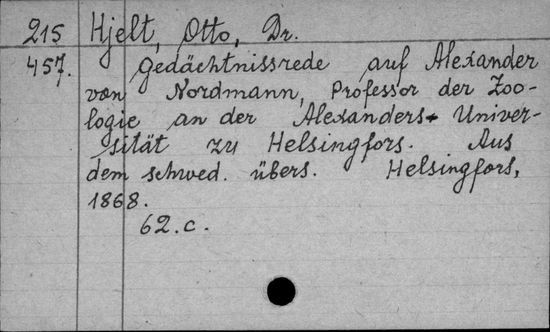 215 Hjelt, Otto, Dr.
457. Gedächtnissrede auf Alexander
von Nordmann, Professor der Zoo-
logie an der Alexanders- Univer-
sität zu Helsingfors. Aus
dem schwed. übers. Helsingfors,
1868.
62.c.